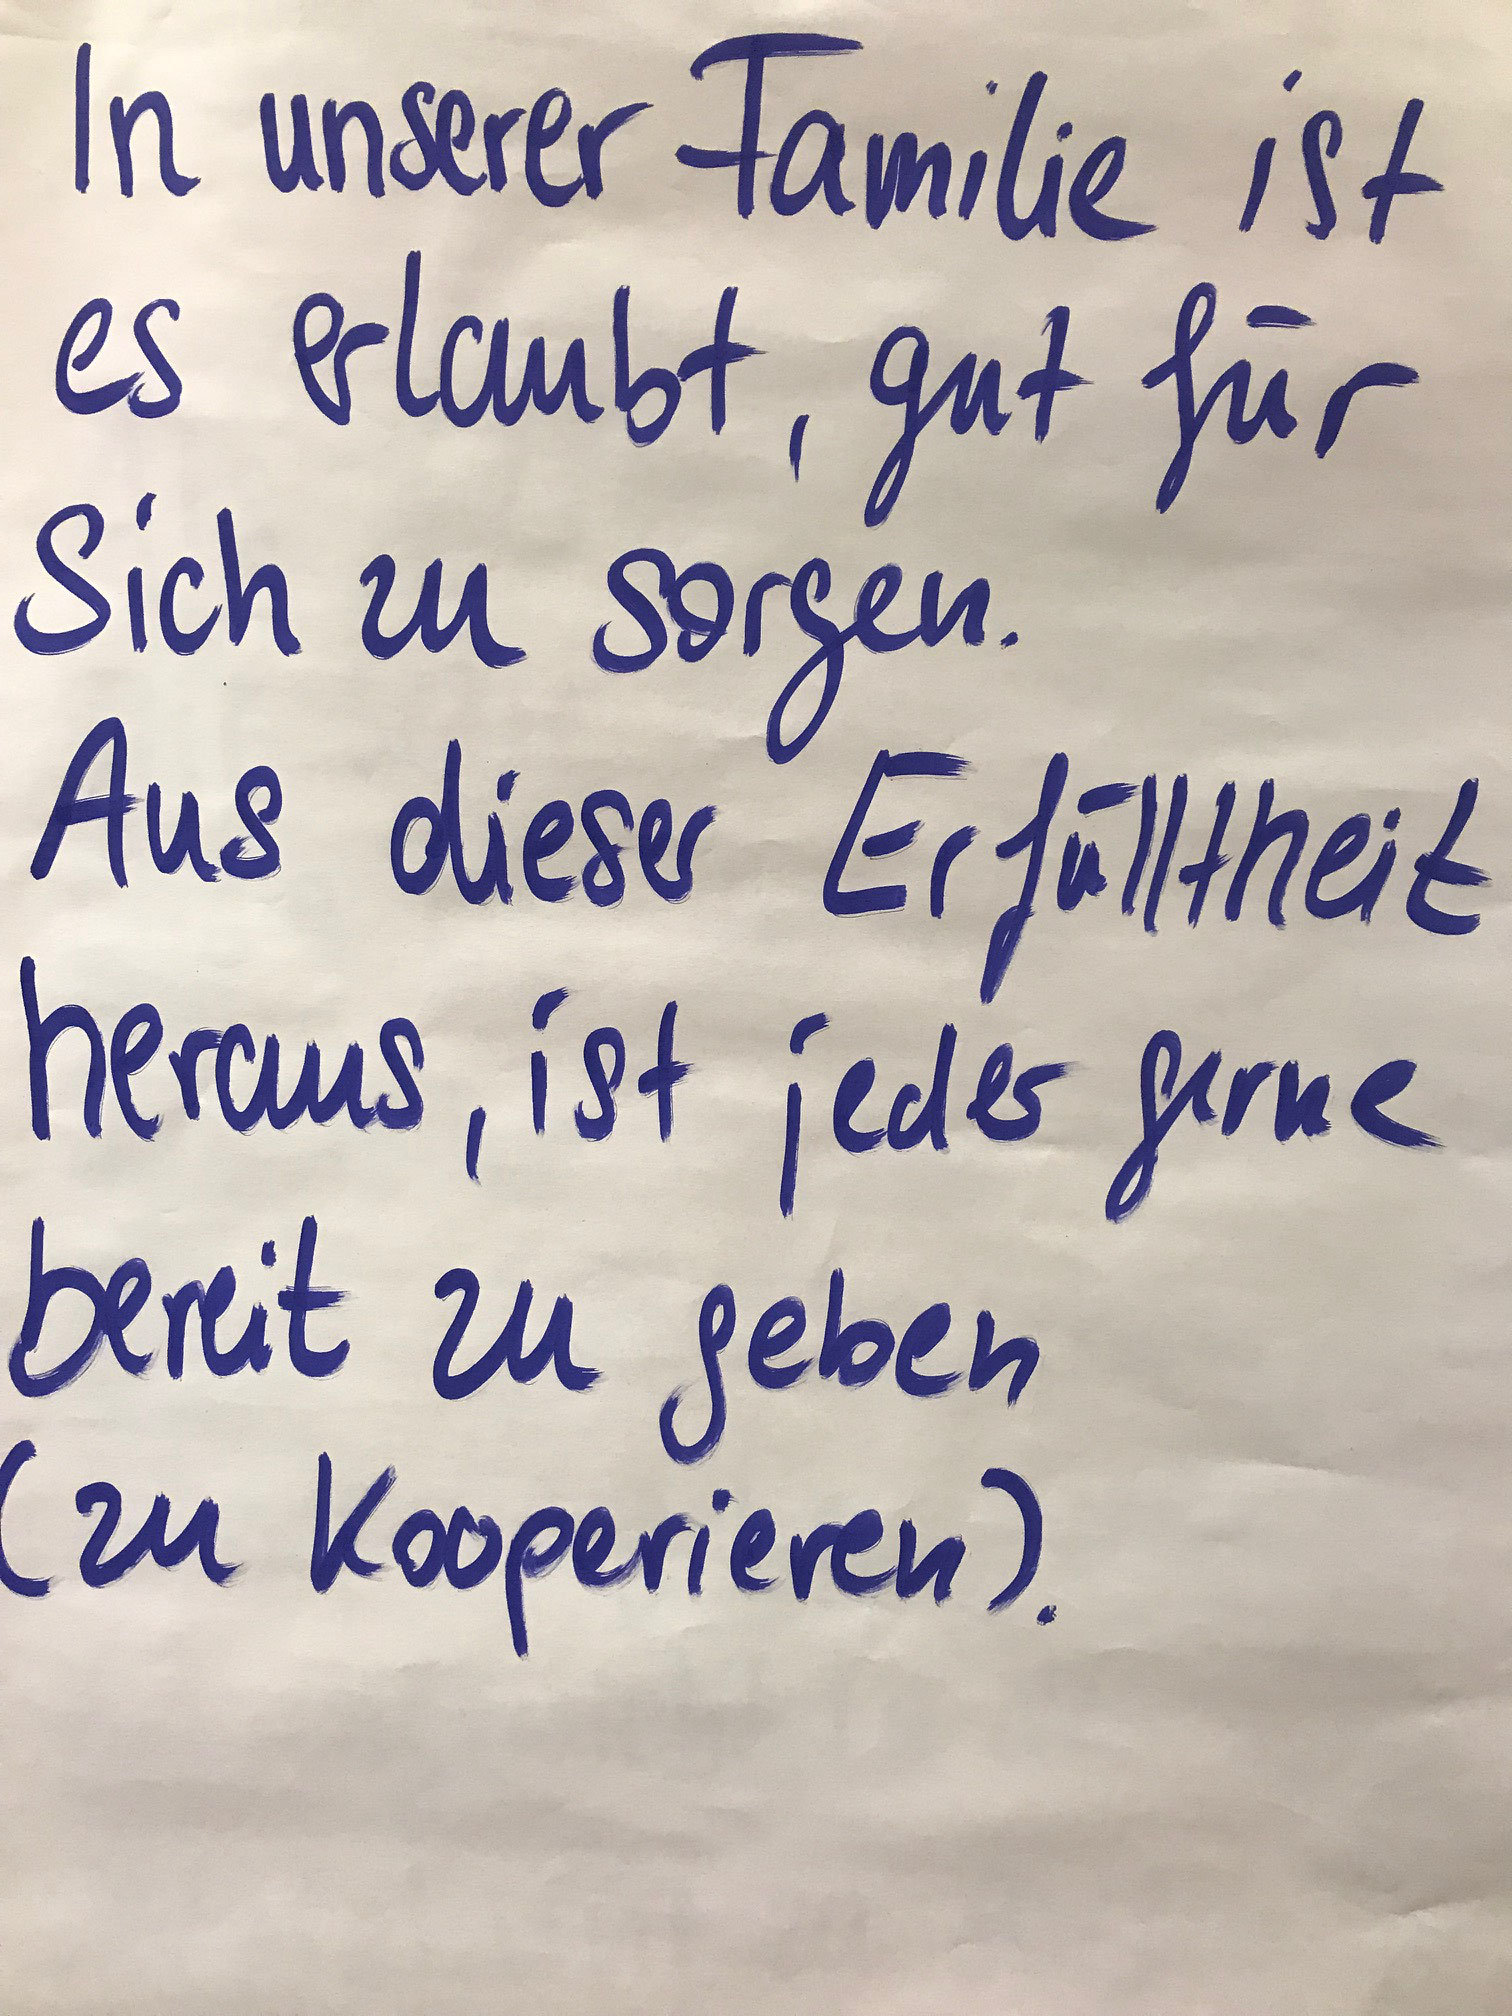 In unserer Familie ist
es erlaubt, gut für
Sich zu sorgen.
Aus dieser Erfülltheit
heraus, ist jeder gerne
bereit zu geben
(zu Kooperieren).